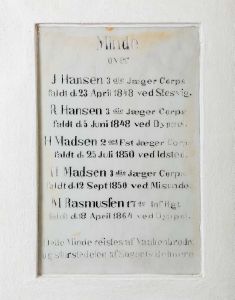 Minde
over
J Hansen 3die Jæger Corps
faldt d. 23 April 1848 ved Slesvig.
R Hansen 3die Jæger Corps
faldt d. 5 Juni 1848 ved Dyppel.
H Madsen 2 Fst Jæger Corps
faldt d. 25 Juli 1850 ved Idsted.
M Madsen 3die Jæger Corps
faldt d. 12 Sept 1850 ved Misunde.
M Rasmussen 17de
faldt d. 18 April 1864 ved Dyppel.
Minde reistes af
og af Sognets Beboere